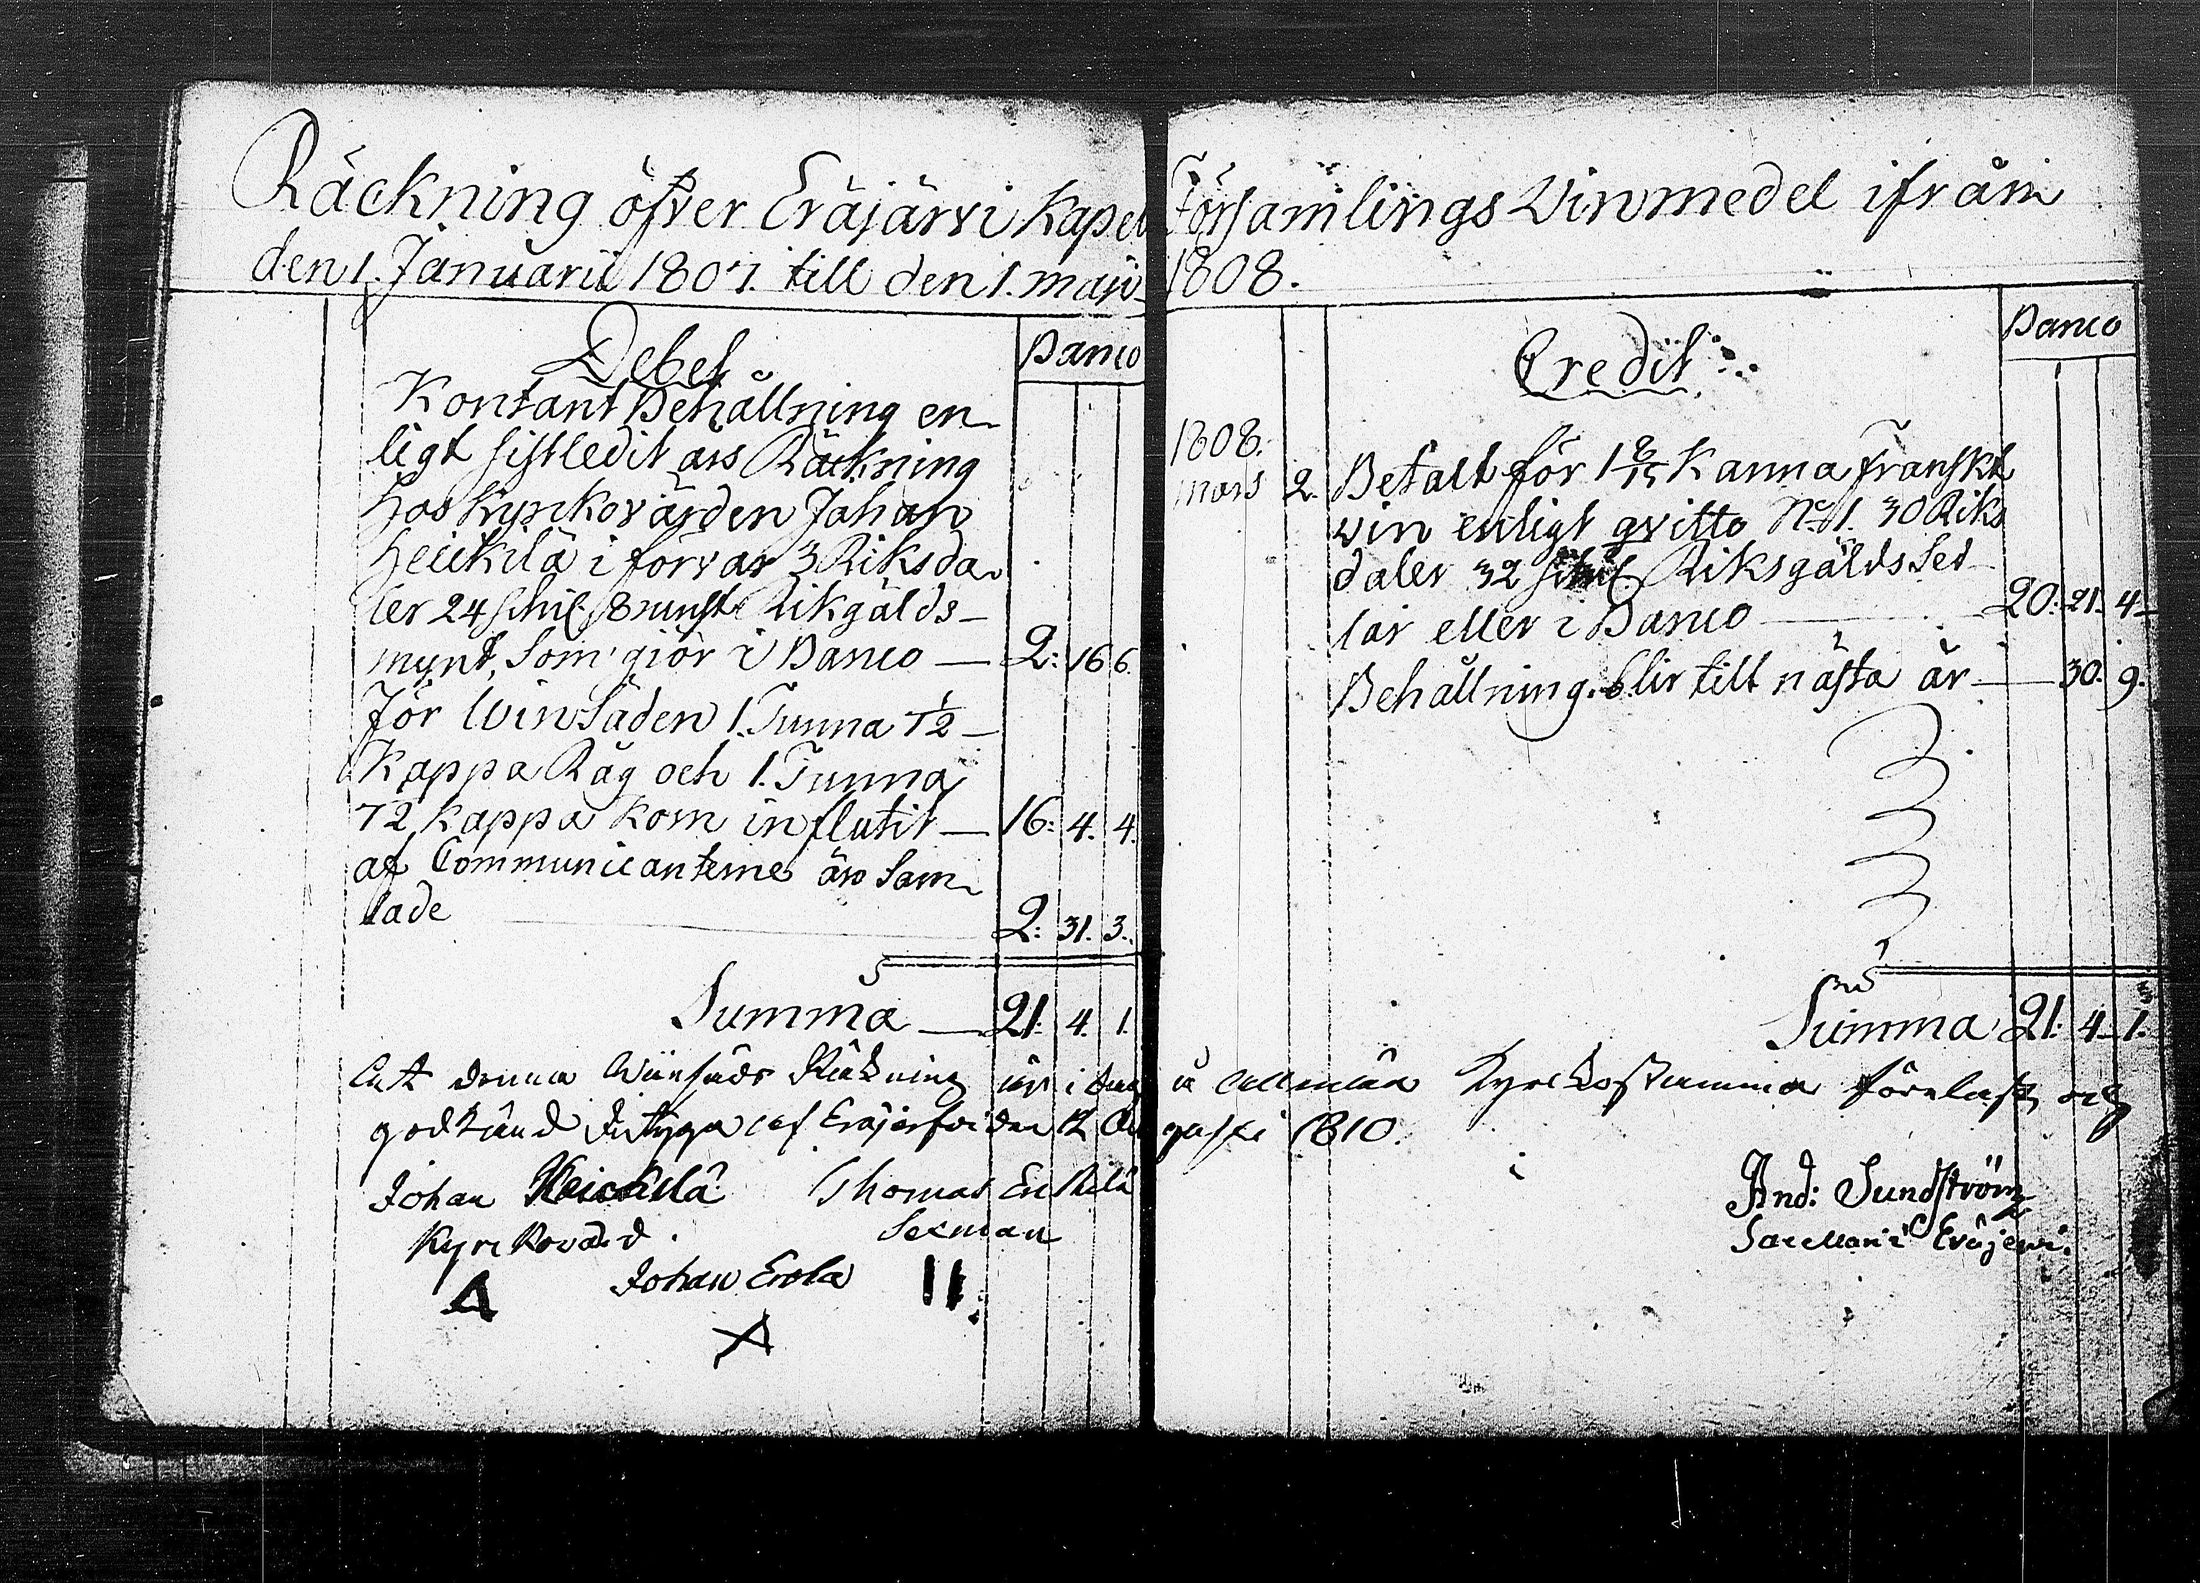 Räckning öfver Eräjärvi Kapel Församlings Vinmedel ifrån
den 1. Januarii 1807. till den 1. maji 1808.
Debet
Banco
Kontant Behållning en-
ligt sistledit års Räckning
hos Kyrkovärden Johan
Heickilä i förvar 3 Riksda-
ler 24 schil. 8 runst. Rikgälds-
mynt, som giör i Banco — 2: 16. 6.
för Winsäden 1. Tunna 7½
Kappa Råg och 1. Tunna
72 kappa korn influtit — 16: 4. 4.
af Communicanterne äro Sam-
lade 2: 31. 3.
Summa — 21: 4. 1.
Credit
Banco
1808.
mars 2. Betalt för 1 8/15 Kanna Franskt
vin enligt qvitto No 1. 30 Riks
daler 32 schil. Riksgälds Sed-
lar eller i Banco — 20: 21. 4.
Behållning blir till nästa år — 30. 9.
Summa 21: 4. 1.
Att denna Winsäds Räkning är i dag å allmän Kyrkostämma föreläst och
godkänd betyga af Eräjerfvi den 12 Augusti 1810.
Johan Heickilä Thomas Erkkilä
Kyrkovärd. Sexman
Johan Erola
And: Sundström
Sacellan i Eräjervi.